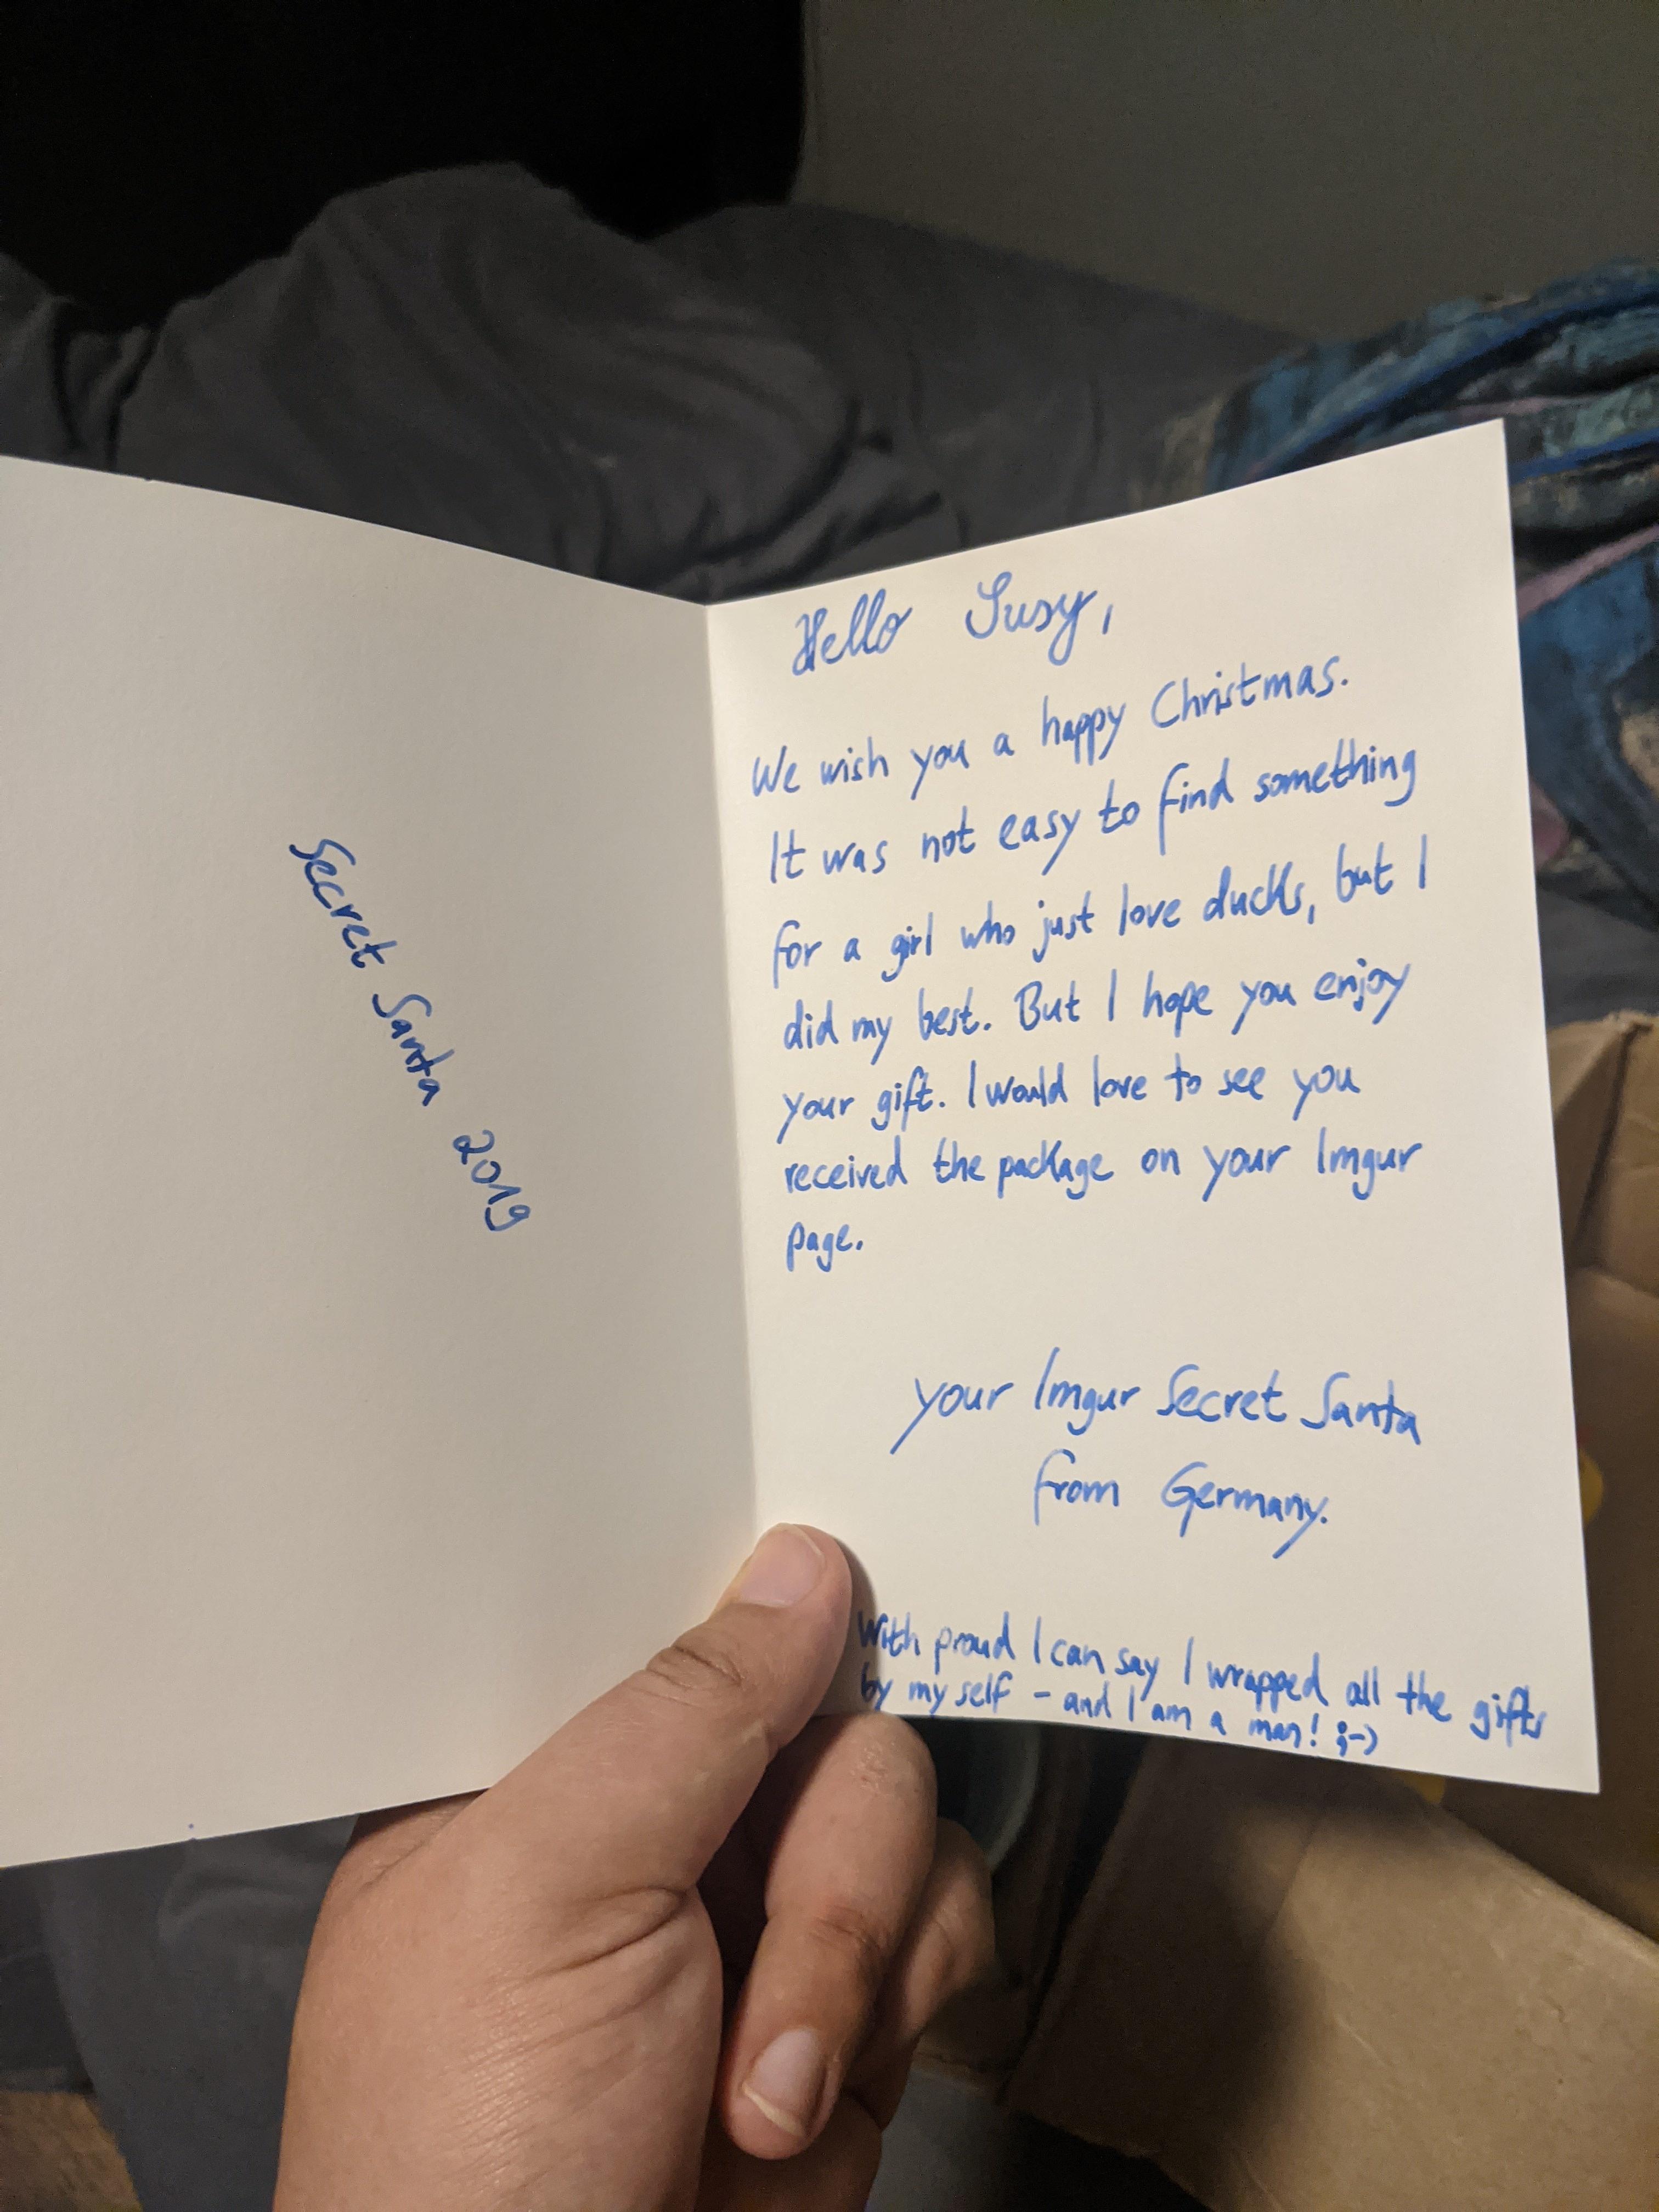 Secret Santa 2019
Hello Susy,
We wish you a happy Christmas.
It was not easy to find something
for a girl who just love ducks, but I
did my best. But I hope you enjoy
your gift. I would love to see you
received the package on your Imgur
page.
your Imgur Secret Santa
from Germany.
With proud I can say I wrapped all the gifts
by my self - and I am a man! ;-)